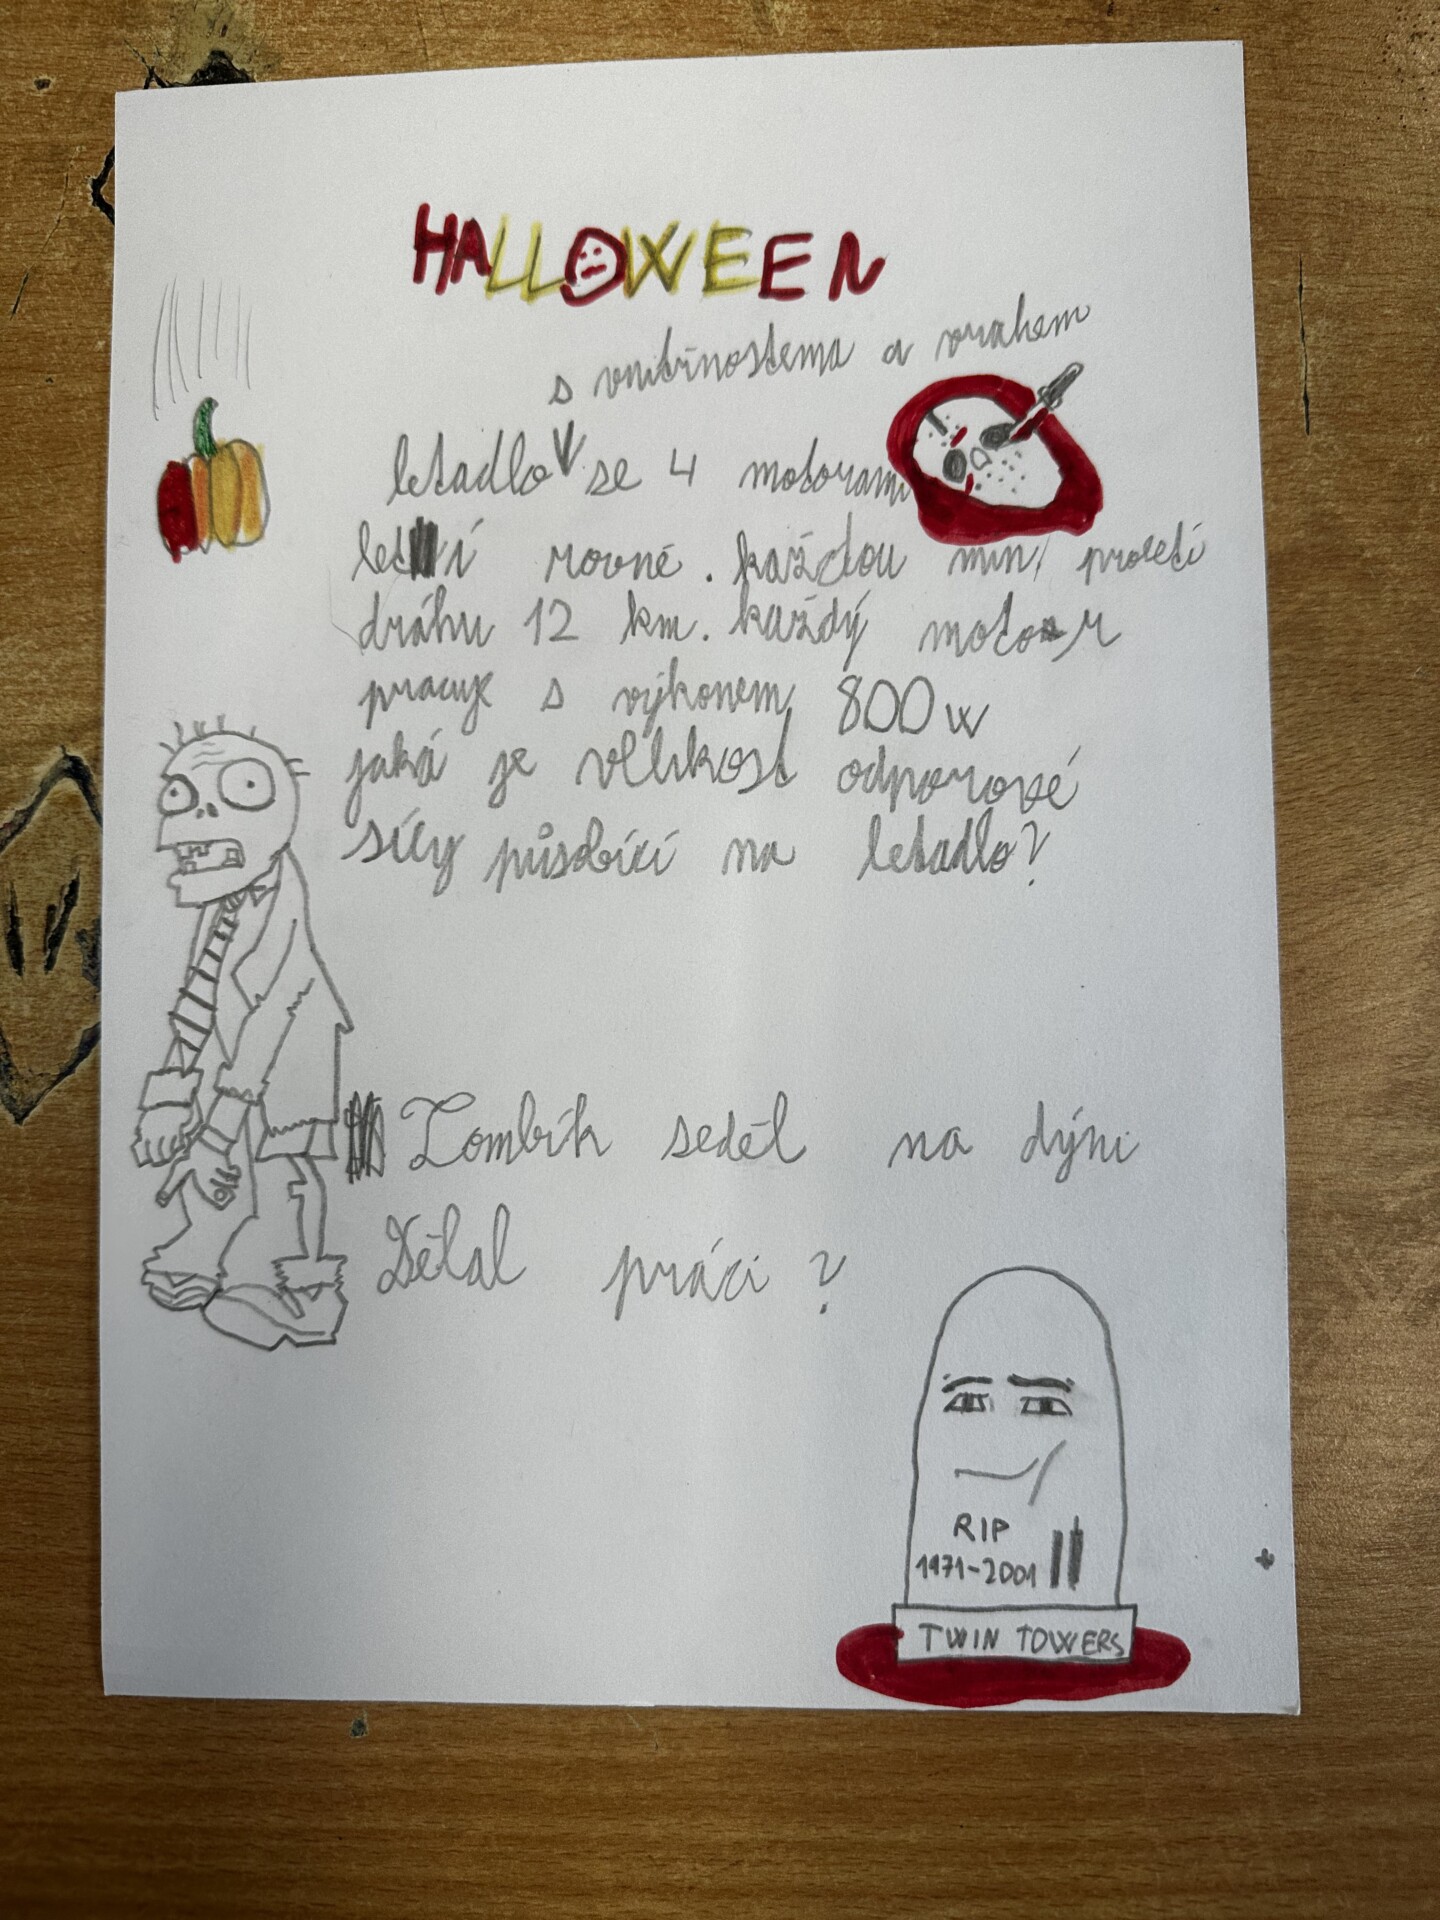 HALLOWEEN
s vnitřnostema a vrahem
letadlo V se 4 motorami
letí rovně. každou min, proletí
dráhu 12 km. každý motor
pracuje s výkonem 800 w
jaká je velikost odporové
síly působící na letadlo?
Zombík seděl na dýni
Dělal práci?
RIP
1971-2001
TWIN TOWERS